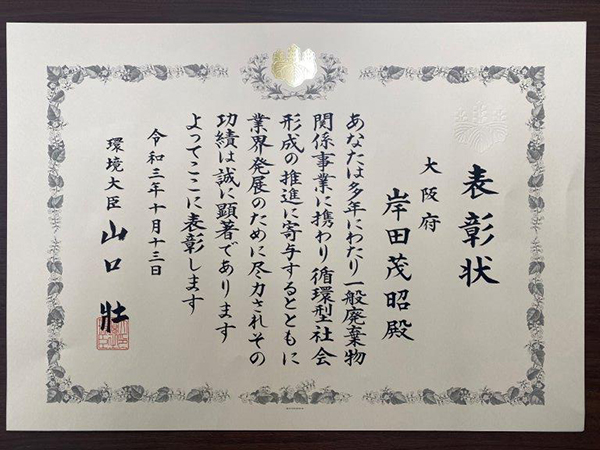 表彰状
大阪府
岸田茂昭殿
あなたは多年にわたり一般廃棄物
関係事業に携わり循環型社会
形成の推進に寄与するとともに
業界発展のために尽力されその
功績は誠に顕著であります
よってここに表彰します
令和三年十月十三日
環境大臣 山口 壯